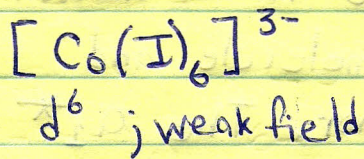 [Co(I)₆]³⁻
d⁶ ; weak field